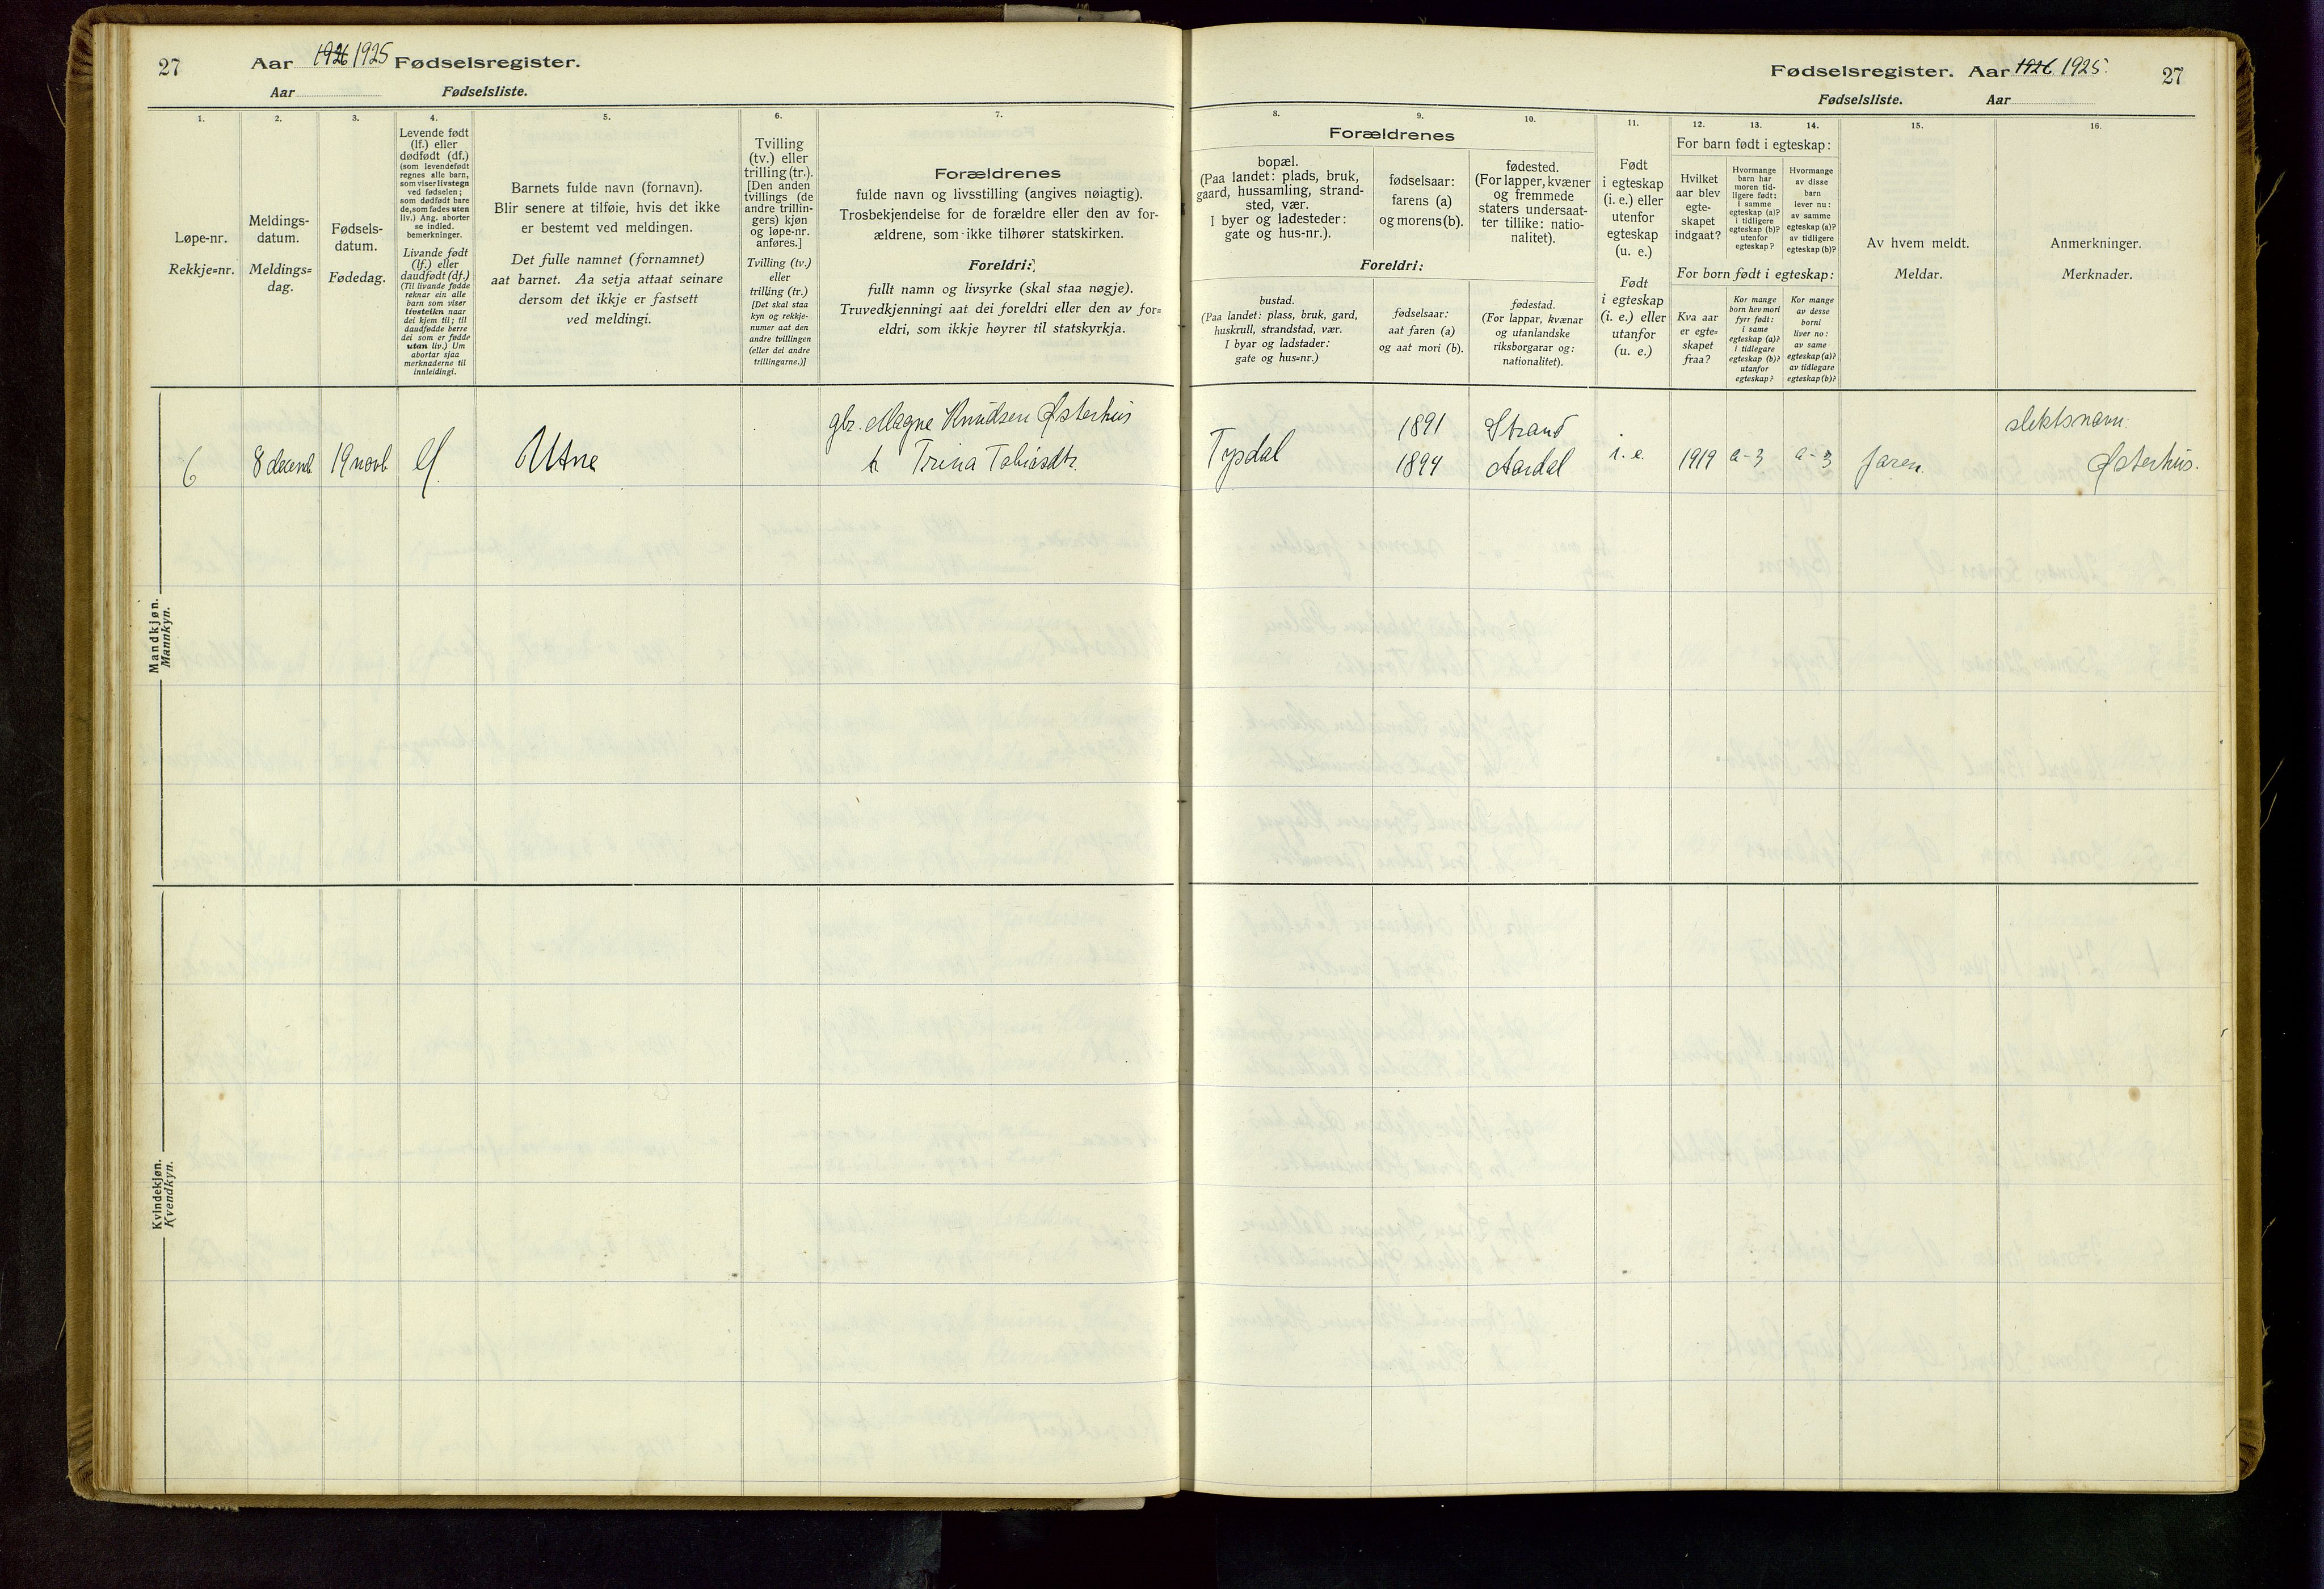 27
Aar 1926 1925 Fødselsregister.
Aar Fødselsliste.
1.
Løpe-nr.
Rekkje=nr.
2.
Meldings-
datum.
Meldings=
dag.
3.
Fødsels-
datum.
Fødedag.
4.
Levende født
(lf.) eller
dødfødt (df.)
(som levendefødt
regnes alle barn,
som viser livstegn
ved fødselen;
som dødfødt bare
de, som fødes uten
liv.) Ang. aborter
se indled.
bemerkninger.
Livande født
(lf.) eller
daudfødt (df.)
(Til livande fødde
reknar ein alle
barn som viser
livsteikn naar
dei kjem til; til
daudfødde berre
dei som er fødde
utan liv.) Um
abortar sjaa
merknaderne til
innleidingi.
5.
Barnets fulde navn (fornavn).
Blir senere at tilføie, hvis det ikke
er bestemt ved meldingen.
Det fulle namnet (fornamnet)
aat barnet. Aa setja attaat seinare
dersom det ikkje er fastsett
ved meldingi.
6.
Tvilling
(tv.) eller
trilling (tr.).
[Den anden
tvillings (de
andre trillin-
gers) kjøn
og løpe-nr.
anføres.]
Tvilling (tv.)
eller
trilling (tr.)
[Det skal staa
kyn og rekkje-
numer aat den
andre tvillingen
(eller dei andre
trillingarne.)]
7.
Forældrenes
fulde navn og livsstilling (angives nøiagtig).
Trosbekjendelse for de forældre eller den av for-
ældrene, som ikke tilhører statskirken.
Foreldri:
fullt namn og livsyrke (skal staa nøgje).
Truvedkjenningi aat dei foreldri eller den av for=
eldri, som ikkje høyrer til statskyrkja.
Mandkjøn.
Mannkyn.
6 8 decemb 19 novb lf Utne
gbr. Magne Knudsen Østerhus
h Trina Tobiasdtr.
Kvindekjøn.
Kvendkyn.
Fødselsregister. Aar 1926 1925. 27
Fødselsliste. Aar
8.
Forældrenes
bopæl.
(Paa landet: plads, bruk,
gaard, hussamling, strand-
sted, vær.
I byer og ladesteder:
gate og hus-nr.).
9.
fødselsaar:
farens (a)
og morens (b).
10.
fødested.
(For lapper, kvæner
og fremmede
staters undersaat-
ter tillike: natio-
nalitet).
Foreldri:
bustad.
(Paa landet: plass, bruk, gard,
huskrull, strandstad, vær.
I byar og ladstader:
gate og hus=nr.)
fødselsaar:
aat faren (a)
og aat mori (b).
fødestad.
(For lappar, kvænar
og utanlandske
riksborgarar og:
nationalitet).
11.
Født
i egteskap
(i. e.) eller
utenfor
egteskap
(u. e.)
Født
i egteskap
(i. e.) eller
utanfor
(u. e.)
12. 13. 14.
For barn født i egteskap:
Hvilket
aar blev
egte-
skapet
indgaat?
Hvormange
barn har
moren tid-
ligere født:
i samme
egteskap (a)?
i tidligere
egteskap (b)?
utenfor
egteskap?
Hvormange
av disse
barn
lever nu:
av samme
egteskap (a)?
av tidligere
egteskap (b)?
For born født i egteskap:
Kva aar
er egte=
skapet
fraa?
Kor mange
born hev mori
fyrr født:
i same
egteskap (a)?
i tidlegare
egteskap (b)?
utanfor
egteskap?
Kor mange
av desse
borni
liver no:
av same
egteskap (a)?
av tidlegare
egteskap (b)?
15.
Av hvem meldt.
Meldar.
16.
Anmerkninger.
Merknader.
Tysdal 1891 Strand i. e. 1919 a-3 a-3 faren. slektsnavn:
1894 Aardal Østerhus.